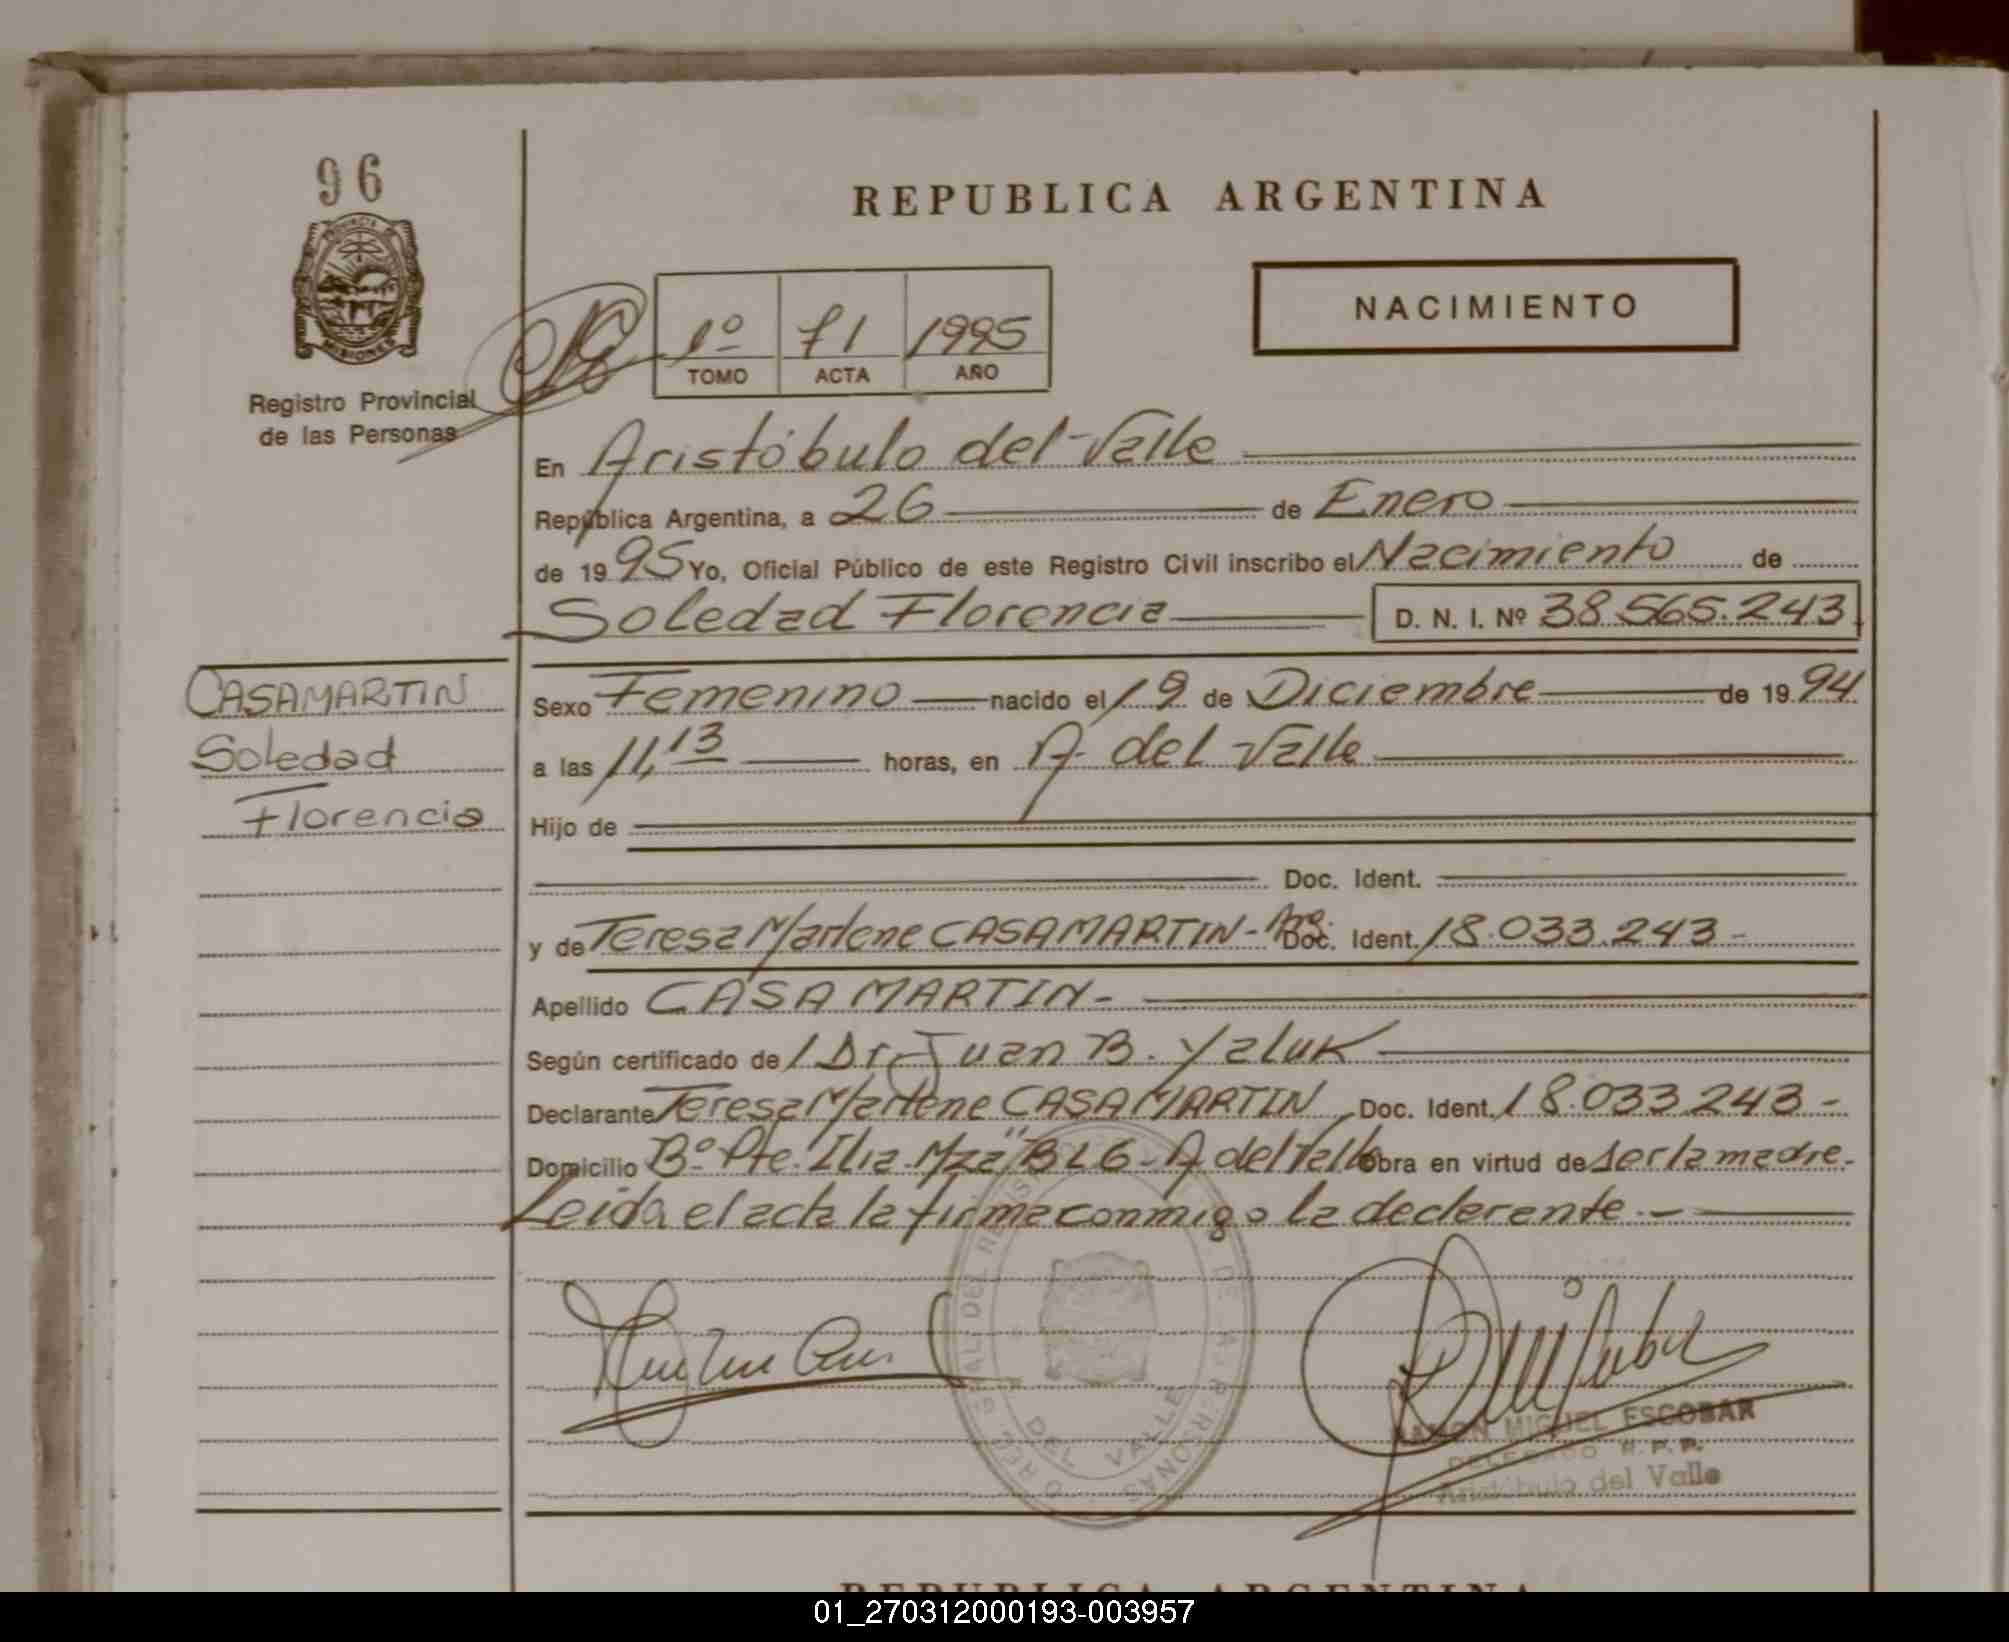 96
REPUBLICA ARGENTINA
PROVINCIA DE
MISIONES
Registro Provincial
de las Personas
1º 71 1995
TOMO ACTA AÑO
NACIMIENTO
En Aristóbulo del Valle
República Argentina, a 26 de Enero
de 1995 Yo, Oficial Público de este Registro Civil inscribo el Nacimiento de
Soledad Florencia D. N. I. Nº 38.565.243
CASAMARTIN
Soledad
Florencia
Sexo Femenino nacido el 19 de Diciembre de 1994
a las 11,13 horas, en A. del Valle
Hijo de
Doc. Ident.
y de Teresa Marlene CASAMARTIN - Arg. Doc. Ident. 18.033.243 -
Apellido CASAMARTIN -
Según certificado de l Dr. Juan B. Yaluk
Declarante Teresa Marlene CASAMARTIN Doc. Ident. 18.033.243 -
Domicilio Bº Pte. Illia Mza "B L6 - A. del Valle obra en virtud de ser la madre.-
Leida el acta la firma conmigo la declarante.-
DEL VALLE
RAMON MIGUEL ESCOBAR
DELEGADO R. P. P.
Aristóbulo del Valle
REPUBLICA ARGENTINA
01_270312000193-003957